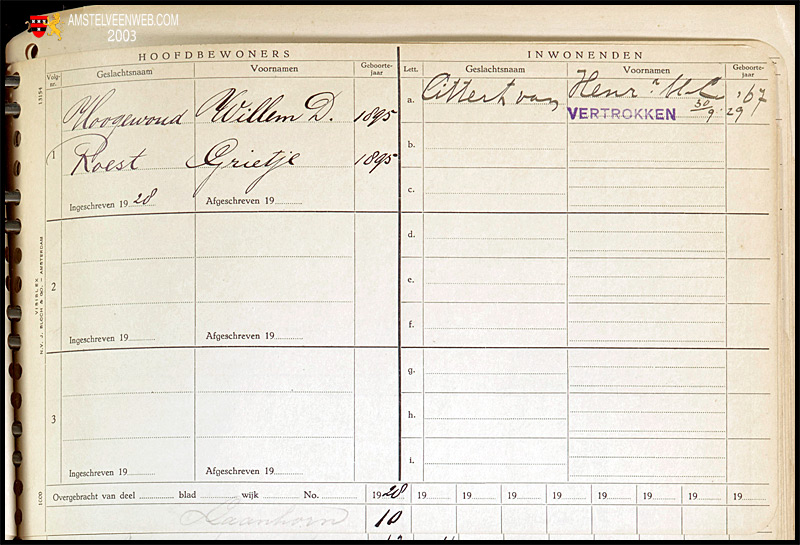 AMSTELVEENWEB.COM
2003
HOOFDBEWONERS
INWONENDEN
Volg-
nr.
Geslachtsnaam
Voornamen
Geboorte-
jaar
Lett.
Geslachtsnaam
Voornamen
Geboorte-
jaar
13154
1
Hoogewoud Willem D. 1895
Roest Grietje 1895
Ingeschreven 19 28 Afgeschreven 19
a. Cittert van Henr '67
VERTROKKEN 30/9 29
b.
c.
2
Ingeschreven 19 Afgeschreven 19
d.
e.
f.
3
Ingeschreven 19 Afgeschreven 19
g.
h.
i.
VISIBLEX
N.V. J. BLOCH & CO. — AMSTERDAM
Overgebracht van deel blad wijk No. 19 28 19 19 19 19 19 19 19 19
10